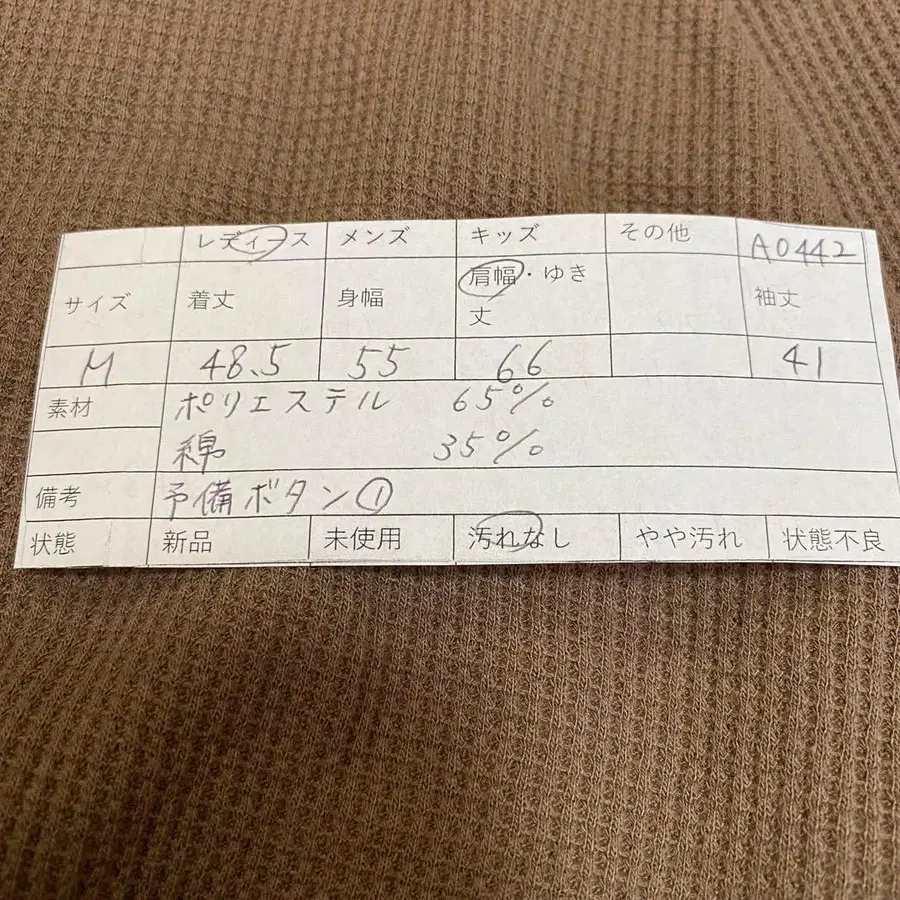 レディース メンズ キッズ その他 A0442
サイズ 着丈 身幅 肩幅・ゆき丈 袖丈
M 48.5 55 66 41
素材 ポリエステル 65%
綿 35%
備考 予備ボタン①
状態 新品 未使用 汚れなし やや汚れ 状態不良